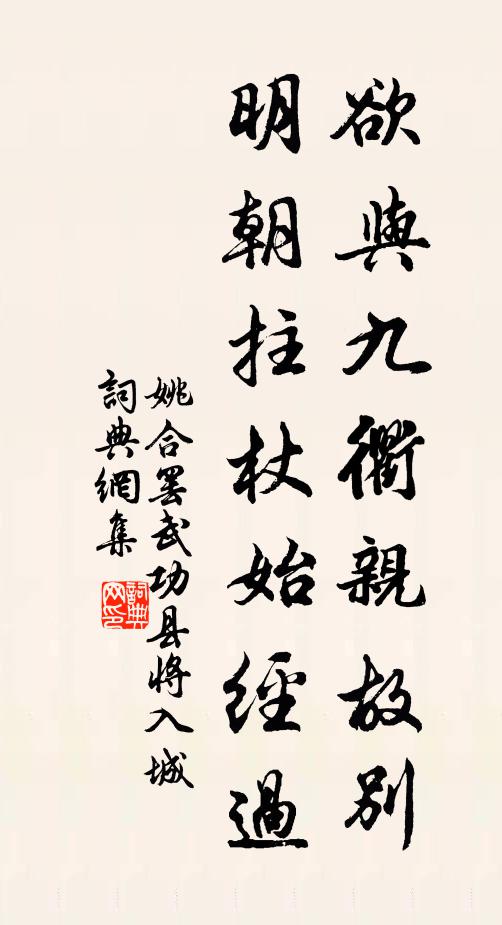 欲與九衢親故別
明朝拄杖始經過
姚合罷武功县將入城
詞典網集
詞典
网印